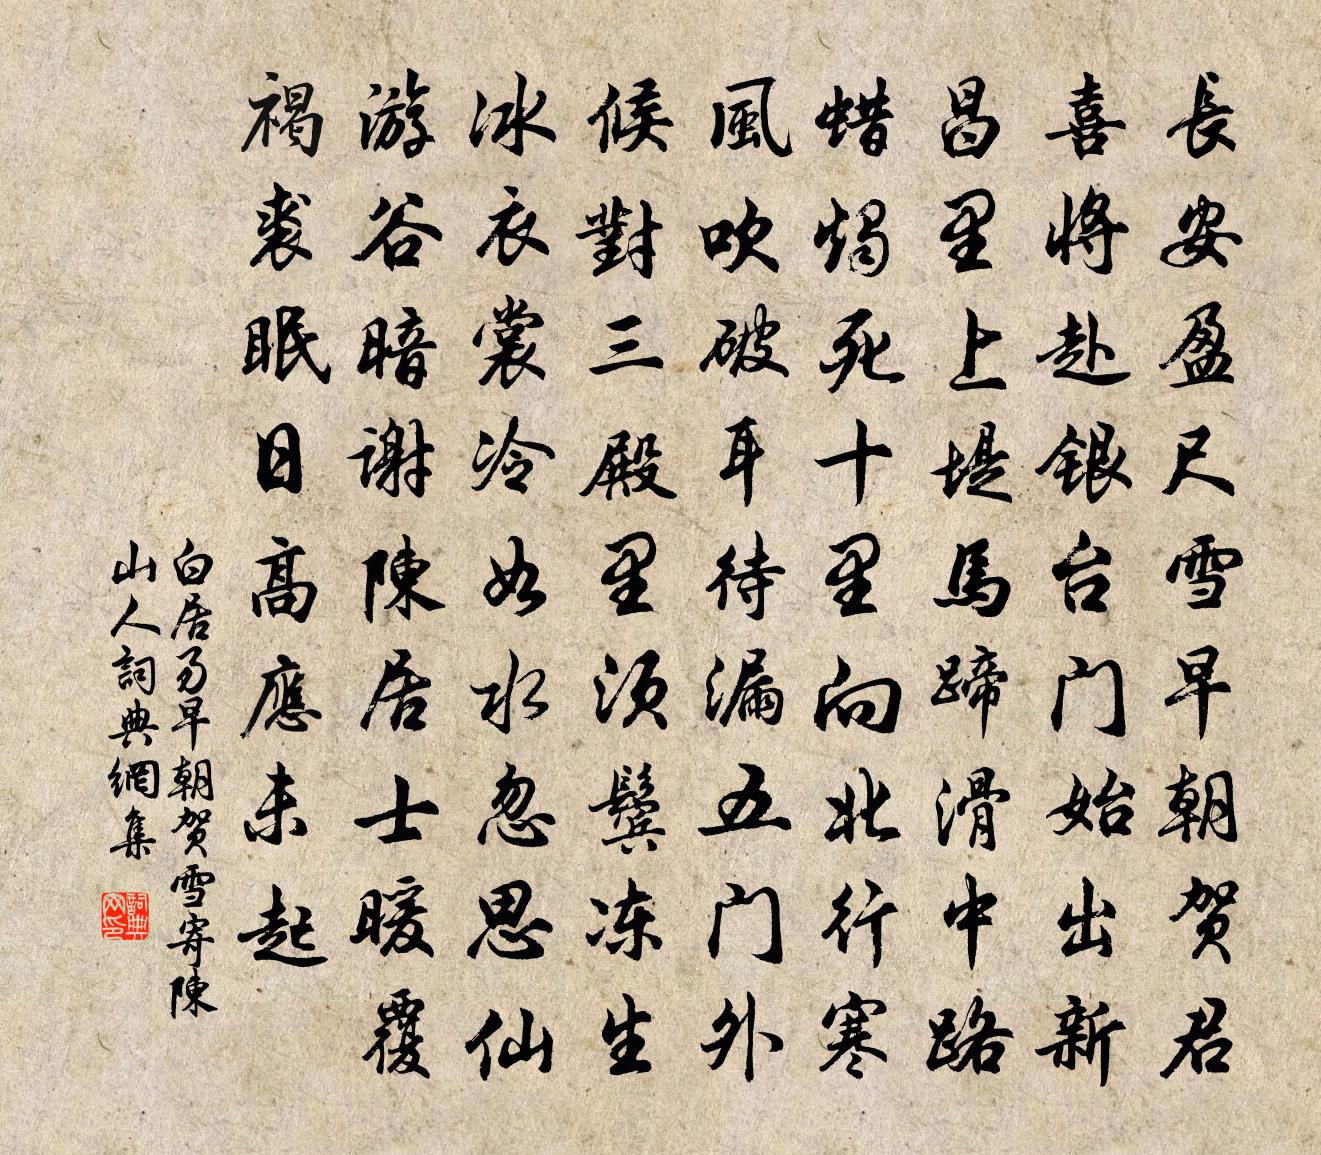 長安盈尺雪早朝贺君
喜將赴銀台门始出新
昌里上堤馬蹄滑中路
蜡燭死十里向北行寒
風吹破耳待漏五门外
候對三殿里须鬓冻生
冰衣裳冷如水忽思仙
游谷暗谢陳居士暖覆
褐裘眠日高應未起
白居易早朝贺雪寄陳
山人詞典網集
詞典网印